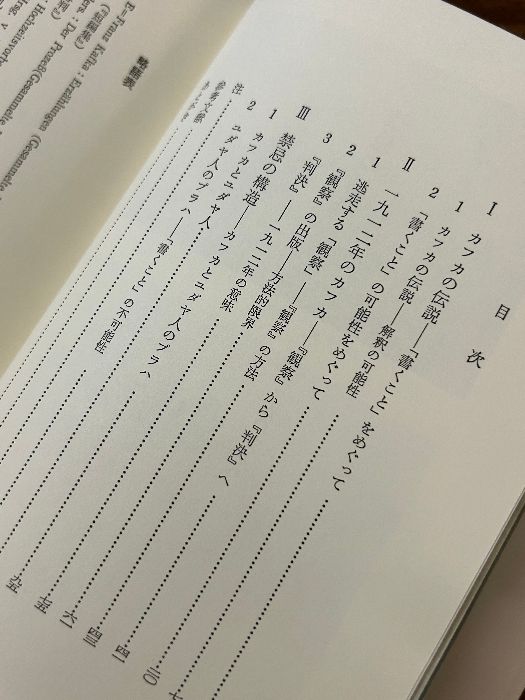 目次
I カフカの伝説――「書くこと」をめぐって
1 カフカの伝説――解釈の可能性
2 「書くこと」の可能性をめぐって
II 一九一二年のカフカ――『観察』から『判決』へ
1 逃走する「観察」――『観察』の方法
2 『観察』の出版――方法的限界
3 『判決』――一九一二年の意味
III 禁忌の構造――カフカとユダヤ人のプラハ
1 カフカとユダヤ人
2 ユダヤ人のプラハ――「書くこと」の不可能性
注
参考文献
あとがき
七
二〇
四一
四三
六一
七五
九五
略語表
E=Franz Kafka : Erzählungen (Gesammelte
Prozeß(Gesammelte
Hochzeitsvorb